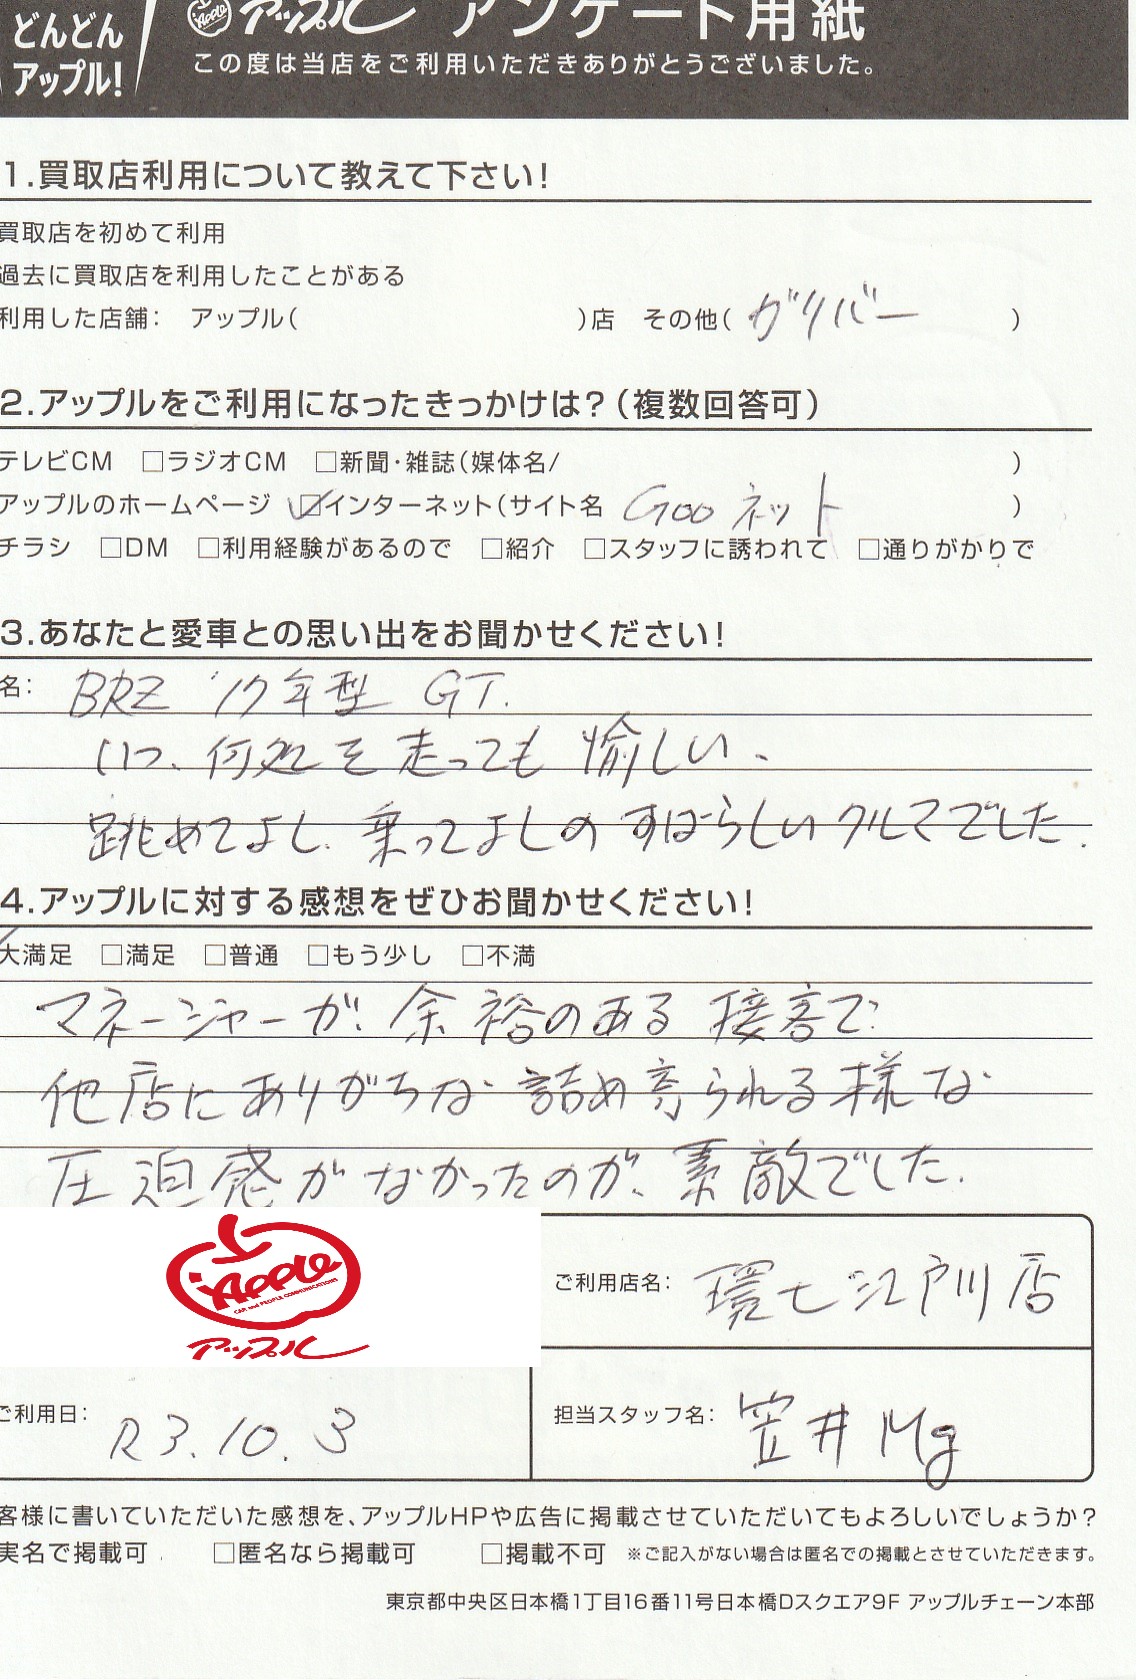 どんどん
アップル!
Apple アップル アンケート用紙
この度は当店をご利用いただきありがとうございました。
1.買取店利用について教えて下さい!
買取店を初めて利用
過去に買取店を利用したことがある
利用した店舗: アップル( )店 その他( ガリバー )
2.アップルをご利用になったきっかけは?(複数回答可)
テレビCM □ラジオCM □新聞・雑誌(媒体名/ )
アップルのホームページ ☑インターネット(サイト名 Gooネット )
チラシ □DM □利用経験があるので □紹介 □スタッフに誘われて □通りがかりで
3.あなたと愛車との思い出をお聞かせください!
名: BRZ '17年型 GT.
いつ、何処を走っても愉しい、
眺めてよし、乗ってよしのすばらしいクルマでした.
4.アップルに対する感想をぜひお聞かせください!
大満足 □満足 □普通 □もう少し □不満
マネージャーが、余裕のある接客で
他店にありがちな詰め寄られる様な
圧迫感がなかったのが、素敵でした.
Apple
CAR and PEOPLE COMMUNICATIONS
アップル
ご利用店名: 環七江戸川店
ご利用日: R3.10.3
担当スタッフ名: 笠井Mg
客様に書いていただいた感想を、アップルHPや広告に掲載させていただいてもよろしいでしょうか?
実名で掲載可 □匿名なら掲載可 □掲載不可 ※ご記入がない場合は匿名での掲載とさせていただきます。
東京都中央区日本橋1丁目16番11号日本橋Dスクエア9F アップルチェーン本部